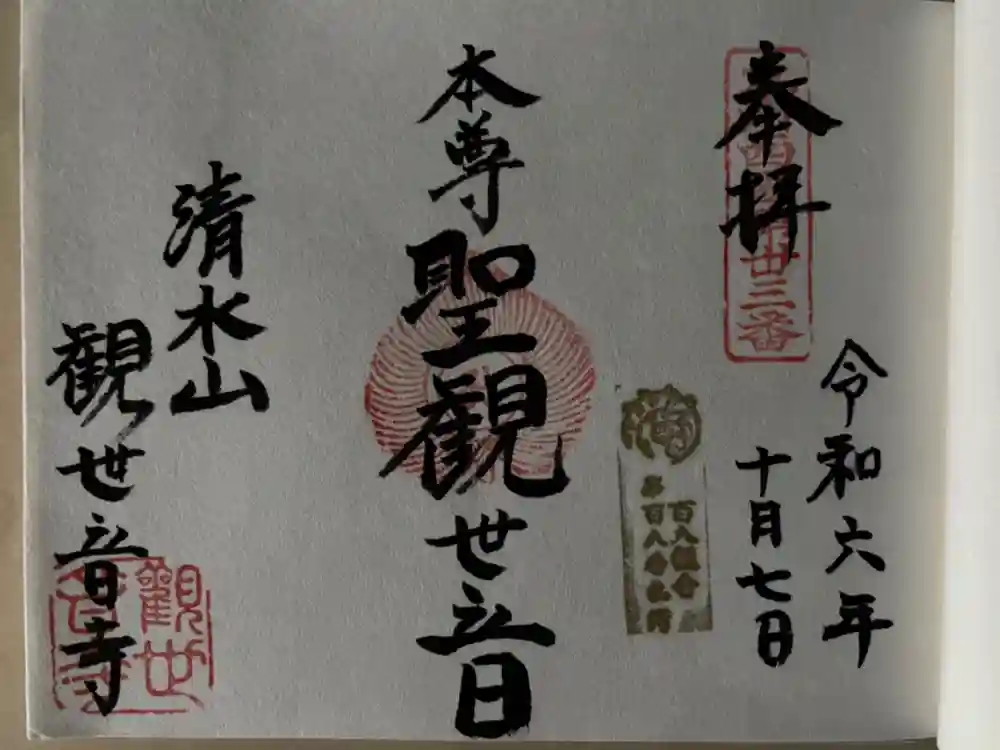 奉拝
廿三番
令和六年
十月七日
本尊
聖觀世音
清水山
觀世音寺
觀世音寺